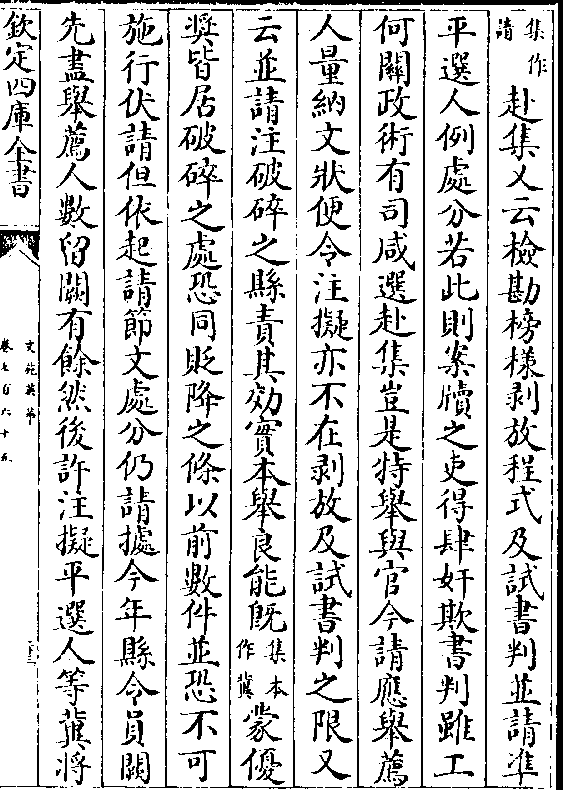 集作請赴集乂云檢勘榜樣剥放程式及試書判並請准
平選人例處分若此則案牘之吏得肆奸欺書判雖工
何關政術有司咸選赴集豈是特舉與官今請應舉薦
人量納文狀便令注擬亦不在剥放及試書判之限又
云並請注破碎之縣責其効實本舉良能旣集本作冀蒙優
奨皆居破碎之處恐同貶降之條以前數件並恐不可
施行伏請但依起請節文處分仍請據今年縣令員闕
先盡舉薦人數留闕有餘然後許注擬平選人等冀將
欽定四庫全書
文苑英華
卷七百六十五